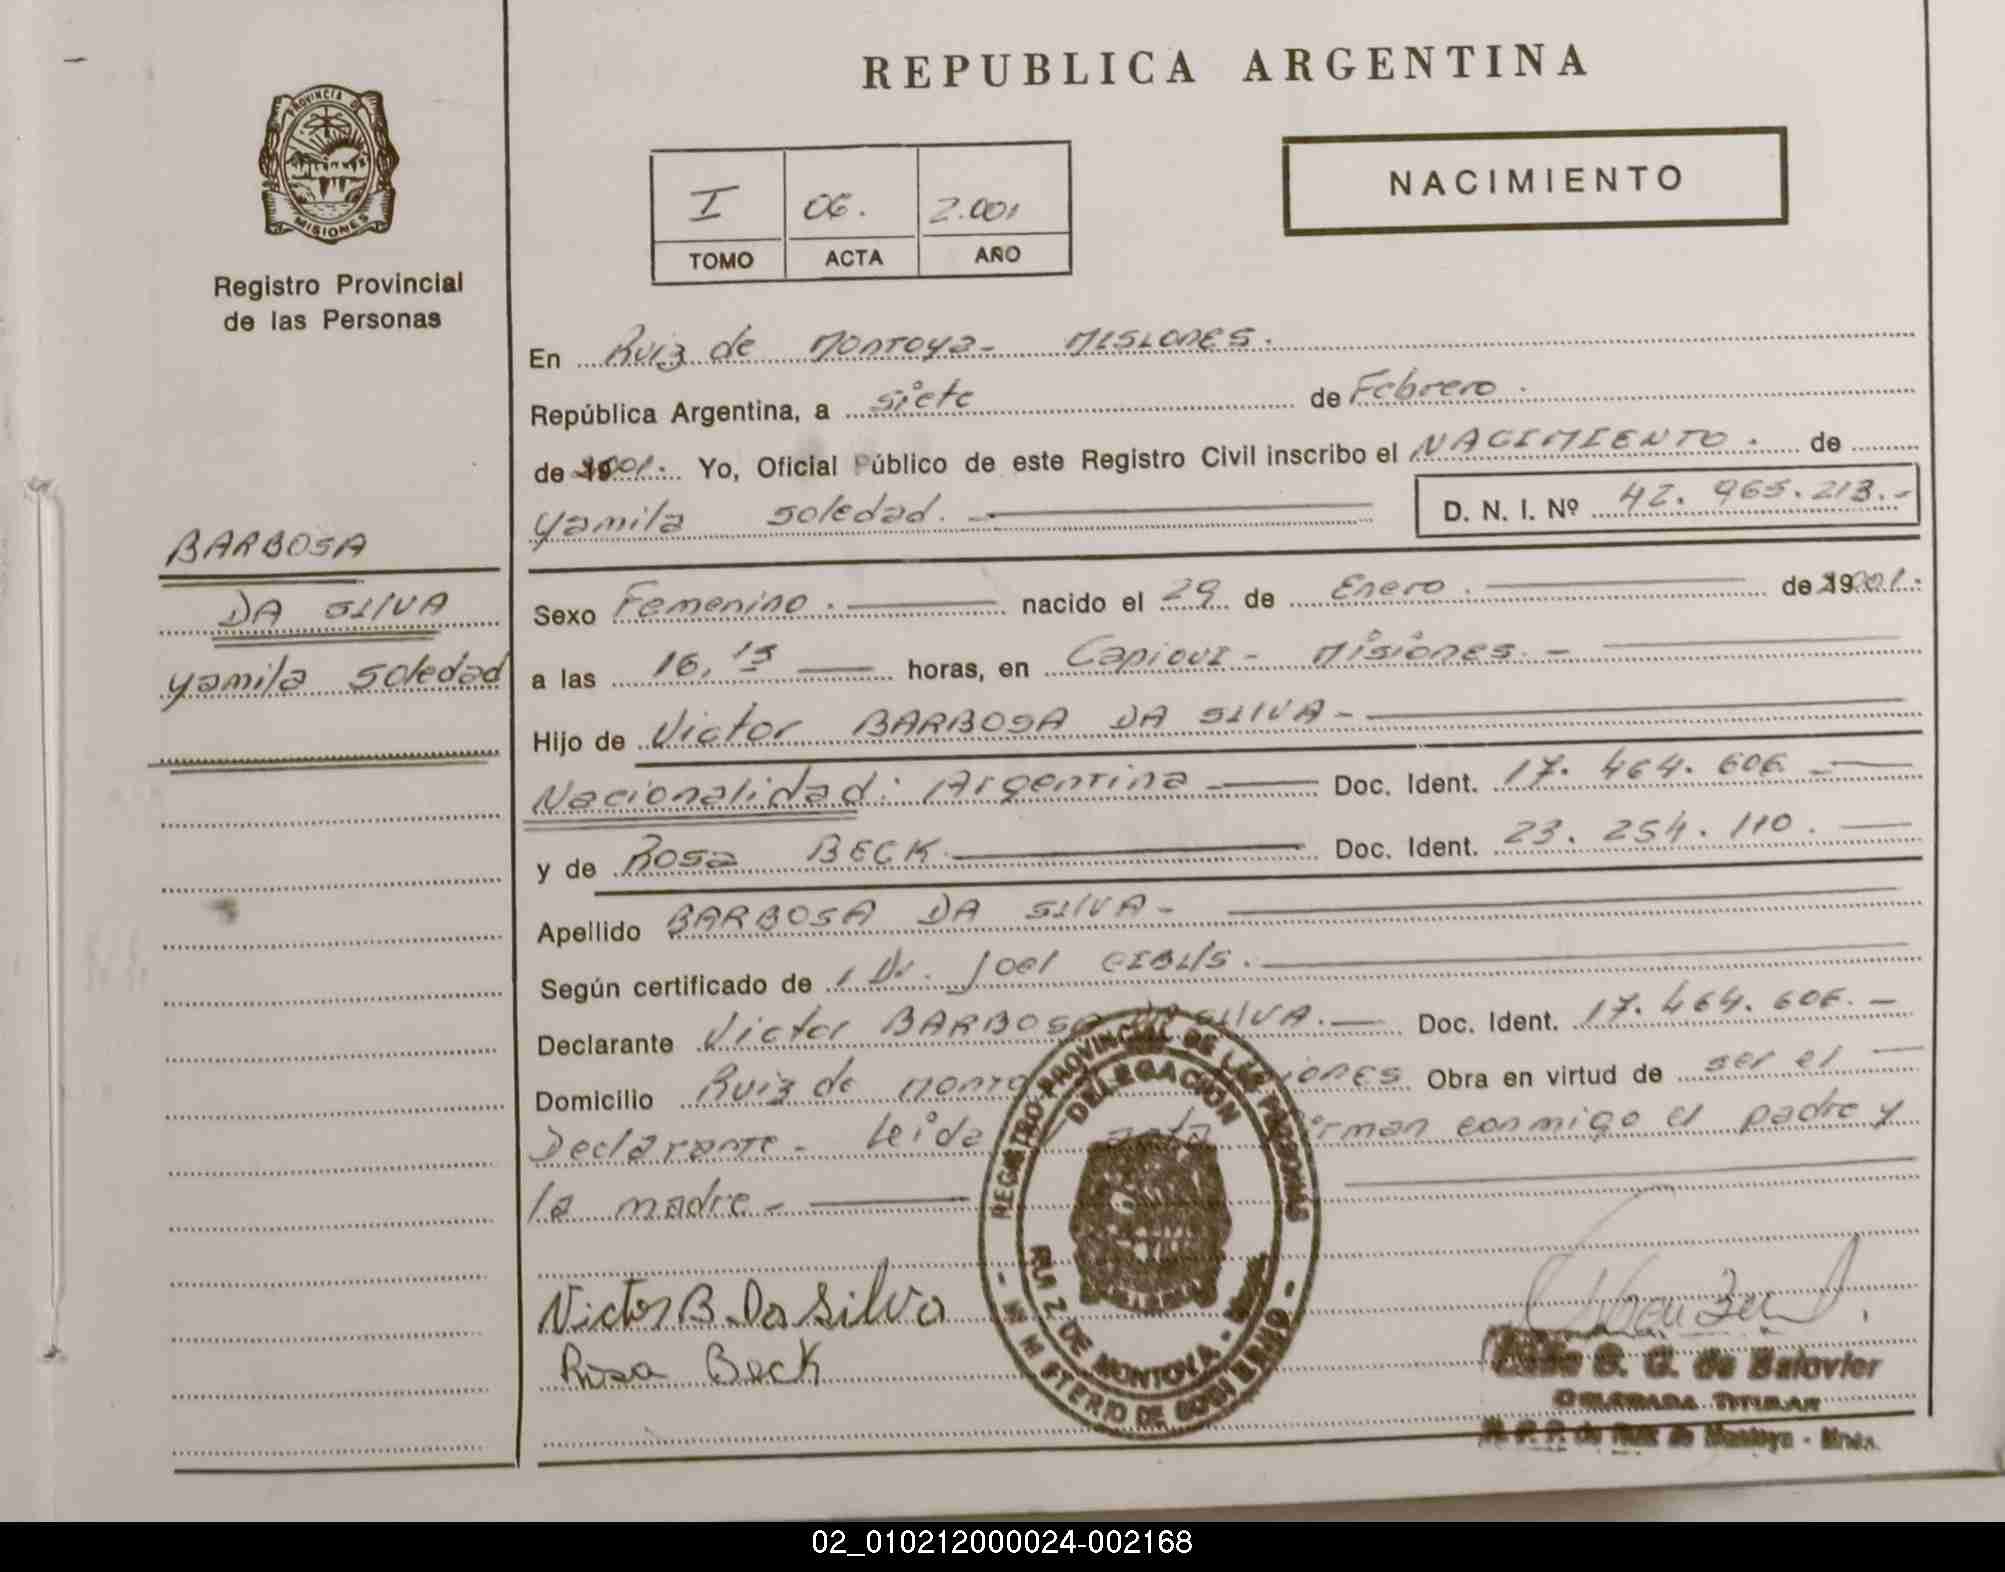 REPUBLICA ARGENTINA
PROVINCIA DE
MISIONES
Registro Provincial
de las Personas
I 06. 2.001
TOMO ACTA AÑO
NACIMIENTO
BARBOSA
DA SILVA
Yamila Soledad
En Ruiz de Montoya- MISIONES.
República Argentina, a siete de Febrero.
de 2001. Yo, Oficial Público de este Registro Civil inscribo el NACIMIENTO. de
Yamila Soledad.
D. N. I. Nº 42.965.213.-
Sexo Femenino. nacido el 29 de Enero. de 2001.
a las 16,15 horas, en Capiovi- Misiones.-
Hijo de Victor BARBOSA DA SILVA-
Nacionalidad: Argentina Doc. Ident. 17.464.606.
y de Rosa BECK Doc. Ident. 23.254.110.
Apellido BARBOSA DA SILVA-
Según certificado de Dr. Joel
Declarante Victor BARBOSA DA SILVA.- Doc. Ident. 17.464.606.-
Domicilio Ruiz de Obra en virtud de ser el
Declarante- Leida acta firman conmigo el padre y
la madre-
Victor B. Da Silva
Rosa Beck
REGISTRO PROVINCIAL DE LAS PERSONAS
DELEGACIÓN
RUIZ DE MONTOYA -
- MINISTERIO DE GOBIERNO -
S. G. de Balovier
DELEGADA TITULAR
R. P. P. de Ruiz de Montoya - Mnes.
02_010212000024-002168